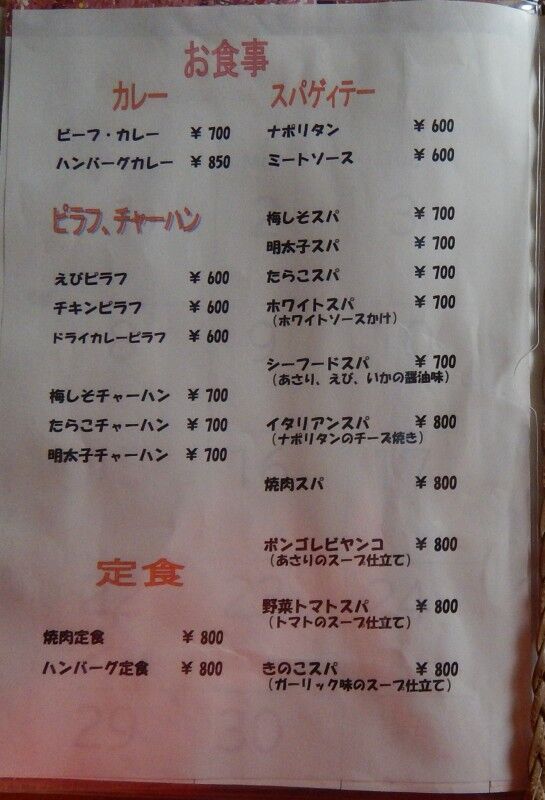 お食事
カレー
ビーフ・カレー ¥700
ハンバーグカレー ¥850
ピラフ、チャーハン
えびピラフ ¥600
チキンピラフ ¥600
ドライカレーピラフ ¥600
梅しそチャーハン ¥700
たらこチャーハン ¥700
明太子チャーハン ¥700
定食
焼肉定食 ¥800
ハンバーグ定食 ¥800
スパゲィテー
ナポリタン ¥600
ミートソース ¥600
梅しそスパ ¥700
明太子スパ ¥700
たらこスパ ¥700
ホワイトスパ ¥700
（ホワイトソースかけ）
シーフードスパ ¥700
（あさり、えび、いかの醤油味）
イタリアンスパ ¥800
（ナポリタンのチーズ焼き）
焼肉スパ ¥800
ボンゴレビヤンコ ¥800
（あさりのスープ仕立て）
野菜トマトスパ ¥800
（トマトのスープ仕立て）
きのこスパ ¥800
（ガーリック味のスープ仕立て）
29 30